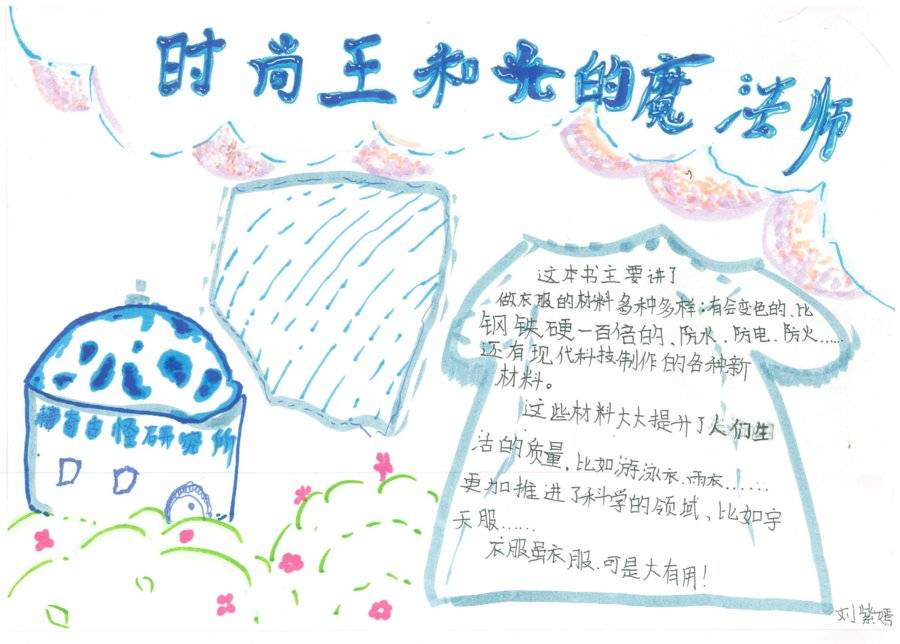 时尚王和光的魔法师
这本书主要讲了
做衣服的材料多种多样:有会变色的、比
钢铁硬一百倍的、防水、防电、防火……
还有现代科技制作的各种新
材料。
这些材料大大提升了人们生
活的质量,比如游泳衣、雨衣……
更加推进了科学的领域、比如宇
天服……
衣服虽衣服、可是大有用!
稀奇古怪研究所
刘紫嫣